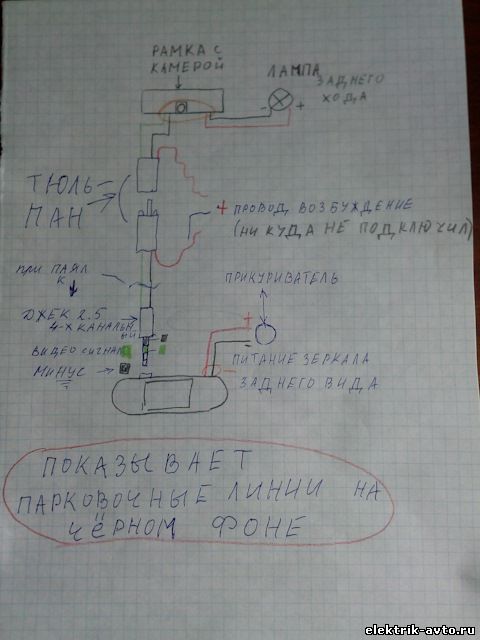 РАМКА С
КАМЕРОЙ
ЛАМПА
ЗАДНЕГО
ХОДА
- +
ТЮЛЬ-
ПАН
+ ПРОВОД ВОЗБУЖДЕНИЕ
(НИ КУДА НЕ ПОДКЛЮЧИЛ)
ПРИ ПАЯЛ
К
ПРИКУРИВАТЕЛЬ
ДЖЕК 2.5
4-Х КАНАЛЬН
ЫЙ
+
ВИДЕО СИГНАЛ
МИНУС
-
ПИТАНИЕ ЗЕРКАЛА
ЗАДНЕГО ВИДА
ПОКАЗЫВАЕТ
ПАРКОВОЧНЫЕ ЛИНИИ НА
ЧЁРНОМ ФОНЕ
elektrik-avto.ru